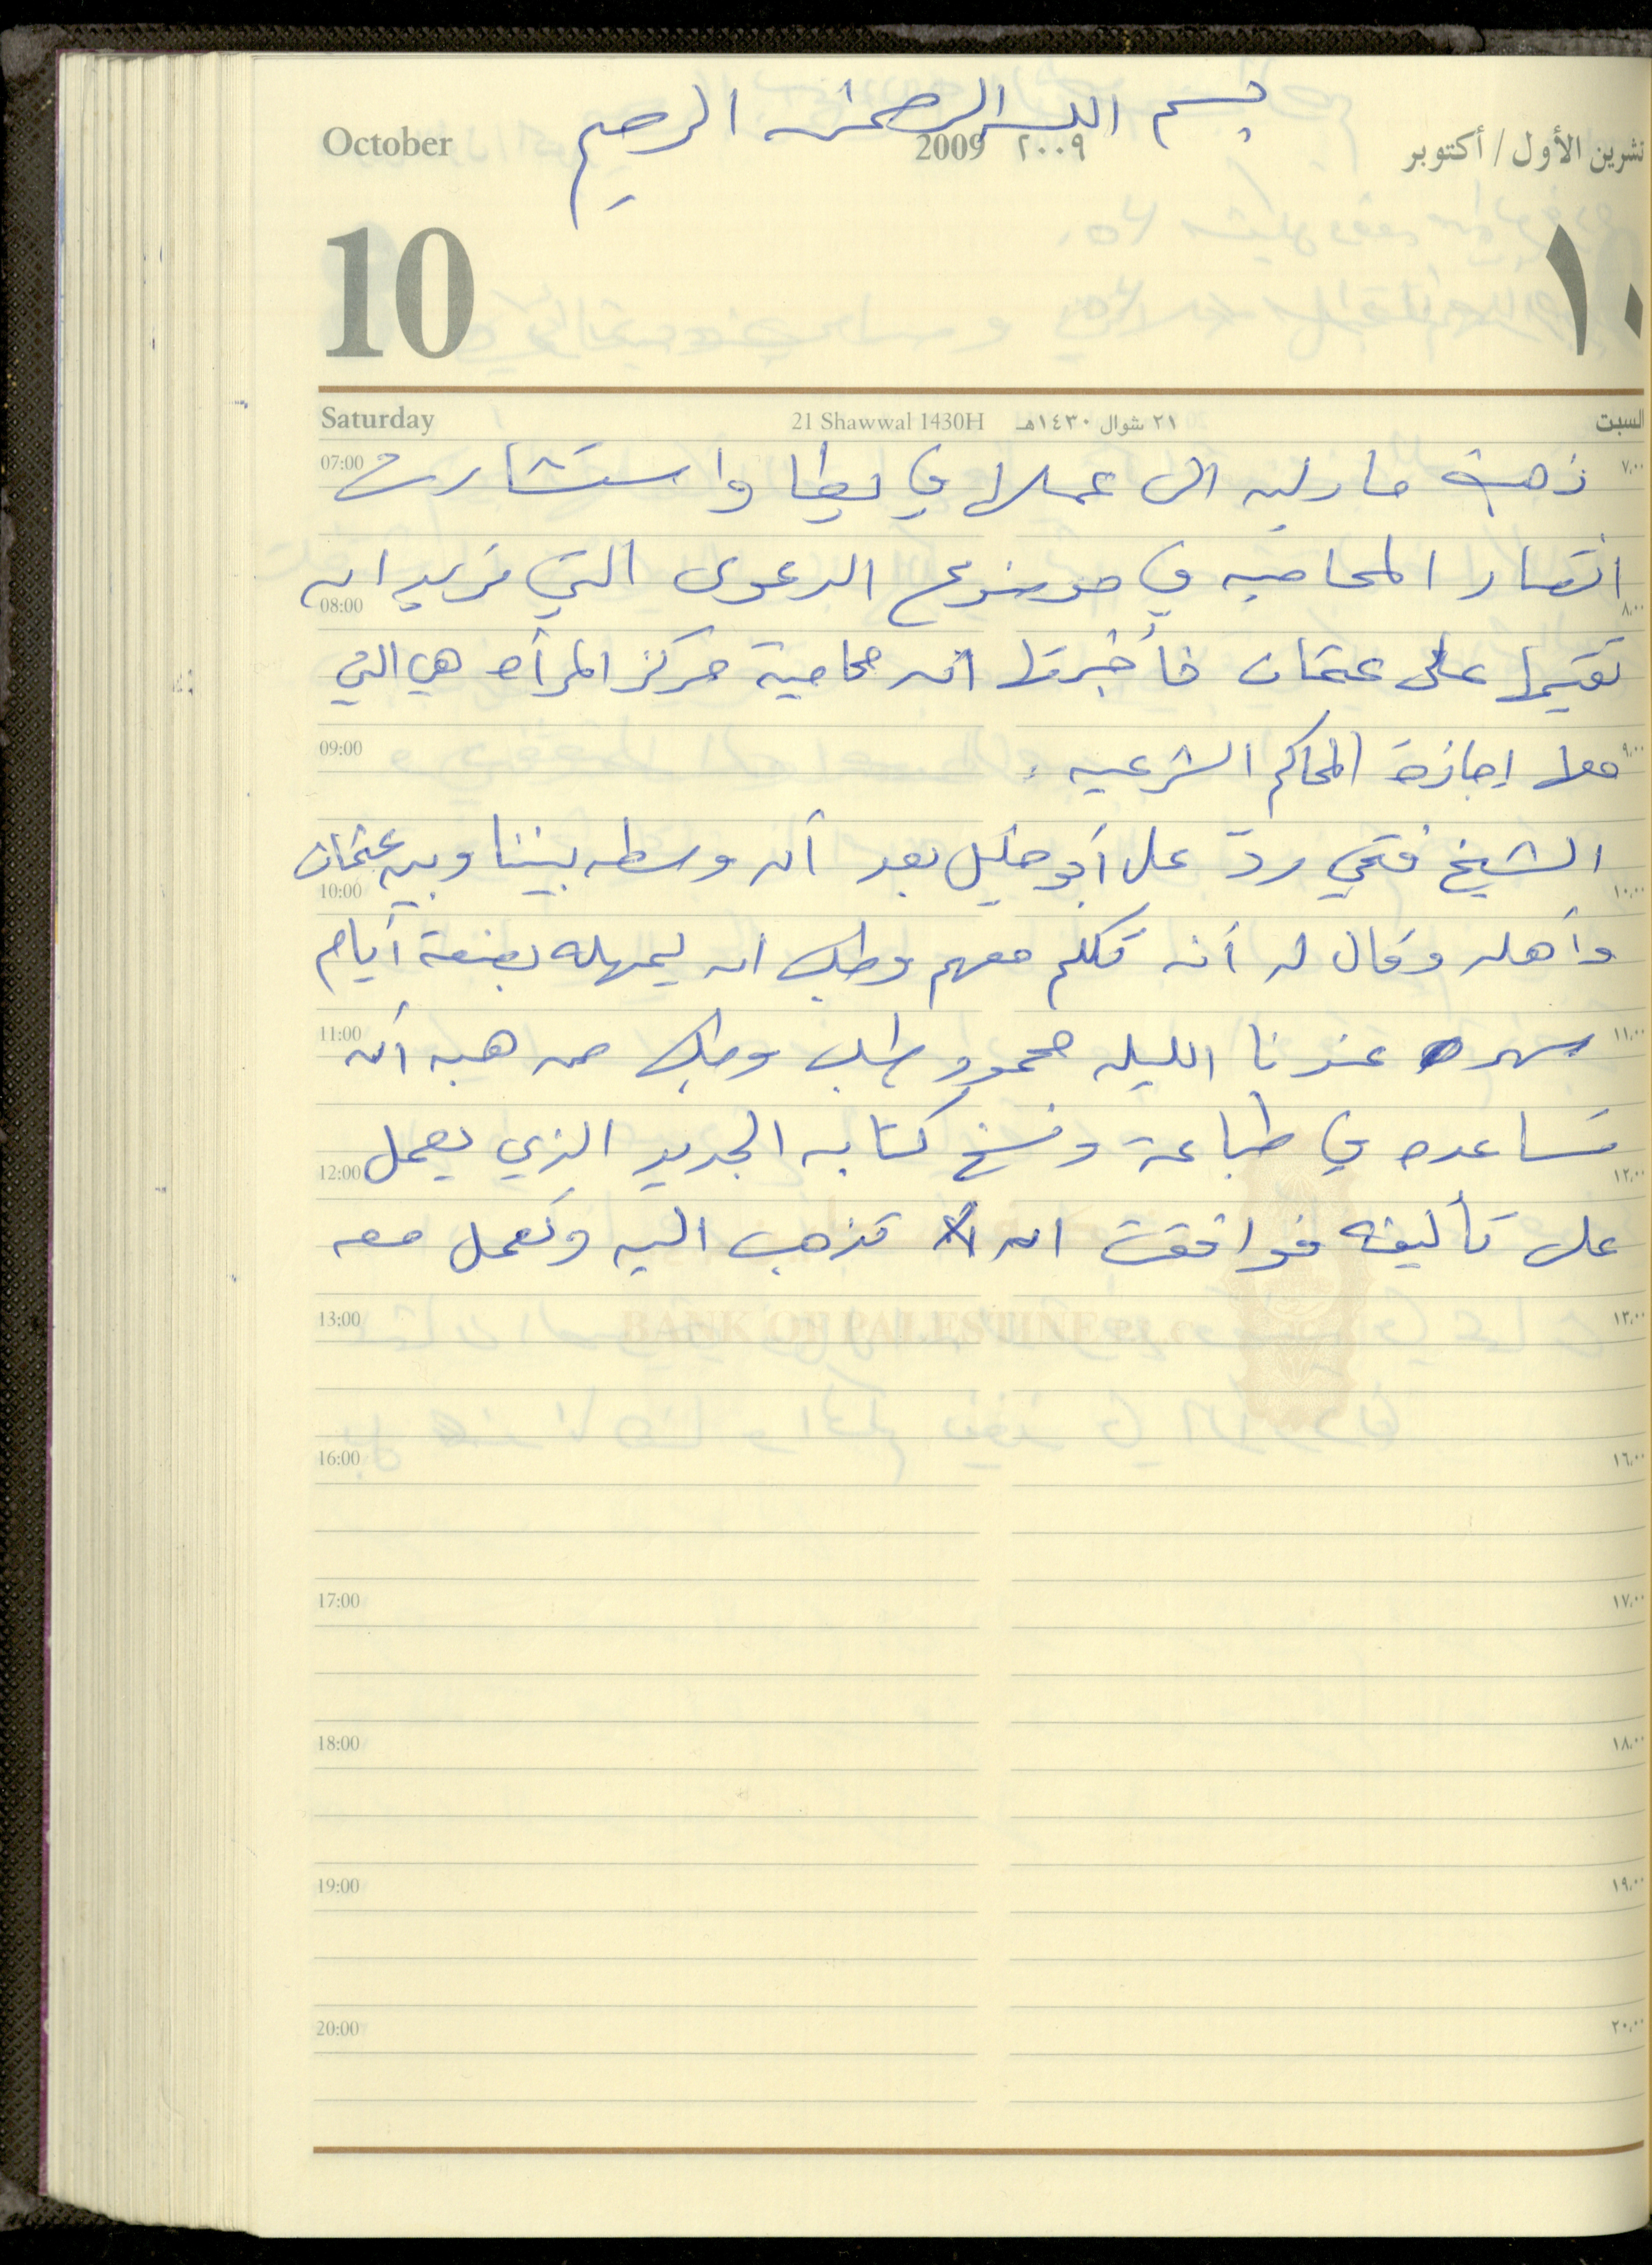 بسم الله الرحمن الرحيم
October 2009 ٢٠٠٩ تشرين الأول / أكتوبر
10 ١٠
Saturday 21 Shawwal 1430H ٢١ شوال ١٤٣٠هـ السبت
07:00 ذهبت مارليه الى عملها في يطا واستشارت ٧,٠٠
انتصار المحاميه في موضوع الدعوى التي تريد ان
08:00 ٨,٠٠
تقيمها على عثمان فأخبرتها ان محامية مركز المرأه هي التي
09:00 معها اجازة المحاكم الشرعيه . ٩,٠٠
الشيخ فتحي ردّ على أبو خليل بعد أن وسطه بيننا وبين عثمان
10:00 ١٠,٠٠
وأهله وقال له أنه تكلم معهم وطلب ان يمهله بضعة أيام
11:00 سهر عندنا الليله محمود طلب وطلب من هبه أن ١١,٠٠
تساعده في طباعة ونسخ كتابه الجديد الذي يعمل
12:00 ١٢,٠٠
على تأليفه فوافقت ان تذهب اليه وتعمل معه
BANK OF PALESTINE P.L.C
13:00 ١٣,٠٠
16:00 ١٦,٠٠
17:00 ١٧,٠٠
18:00 ١٨,٠٠
19:00 ١٩,٠٠
20:00 ٢٠,٠٠